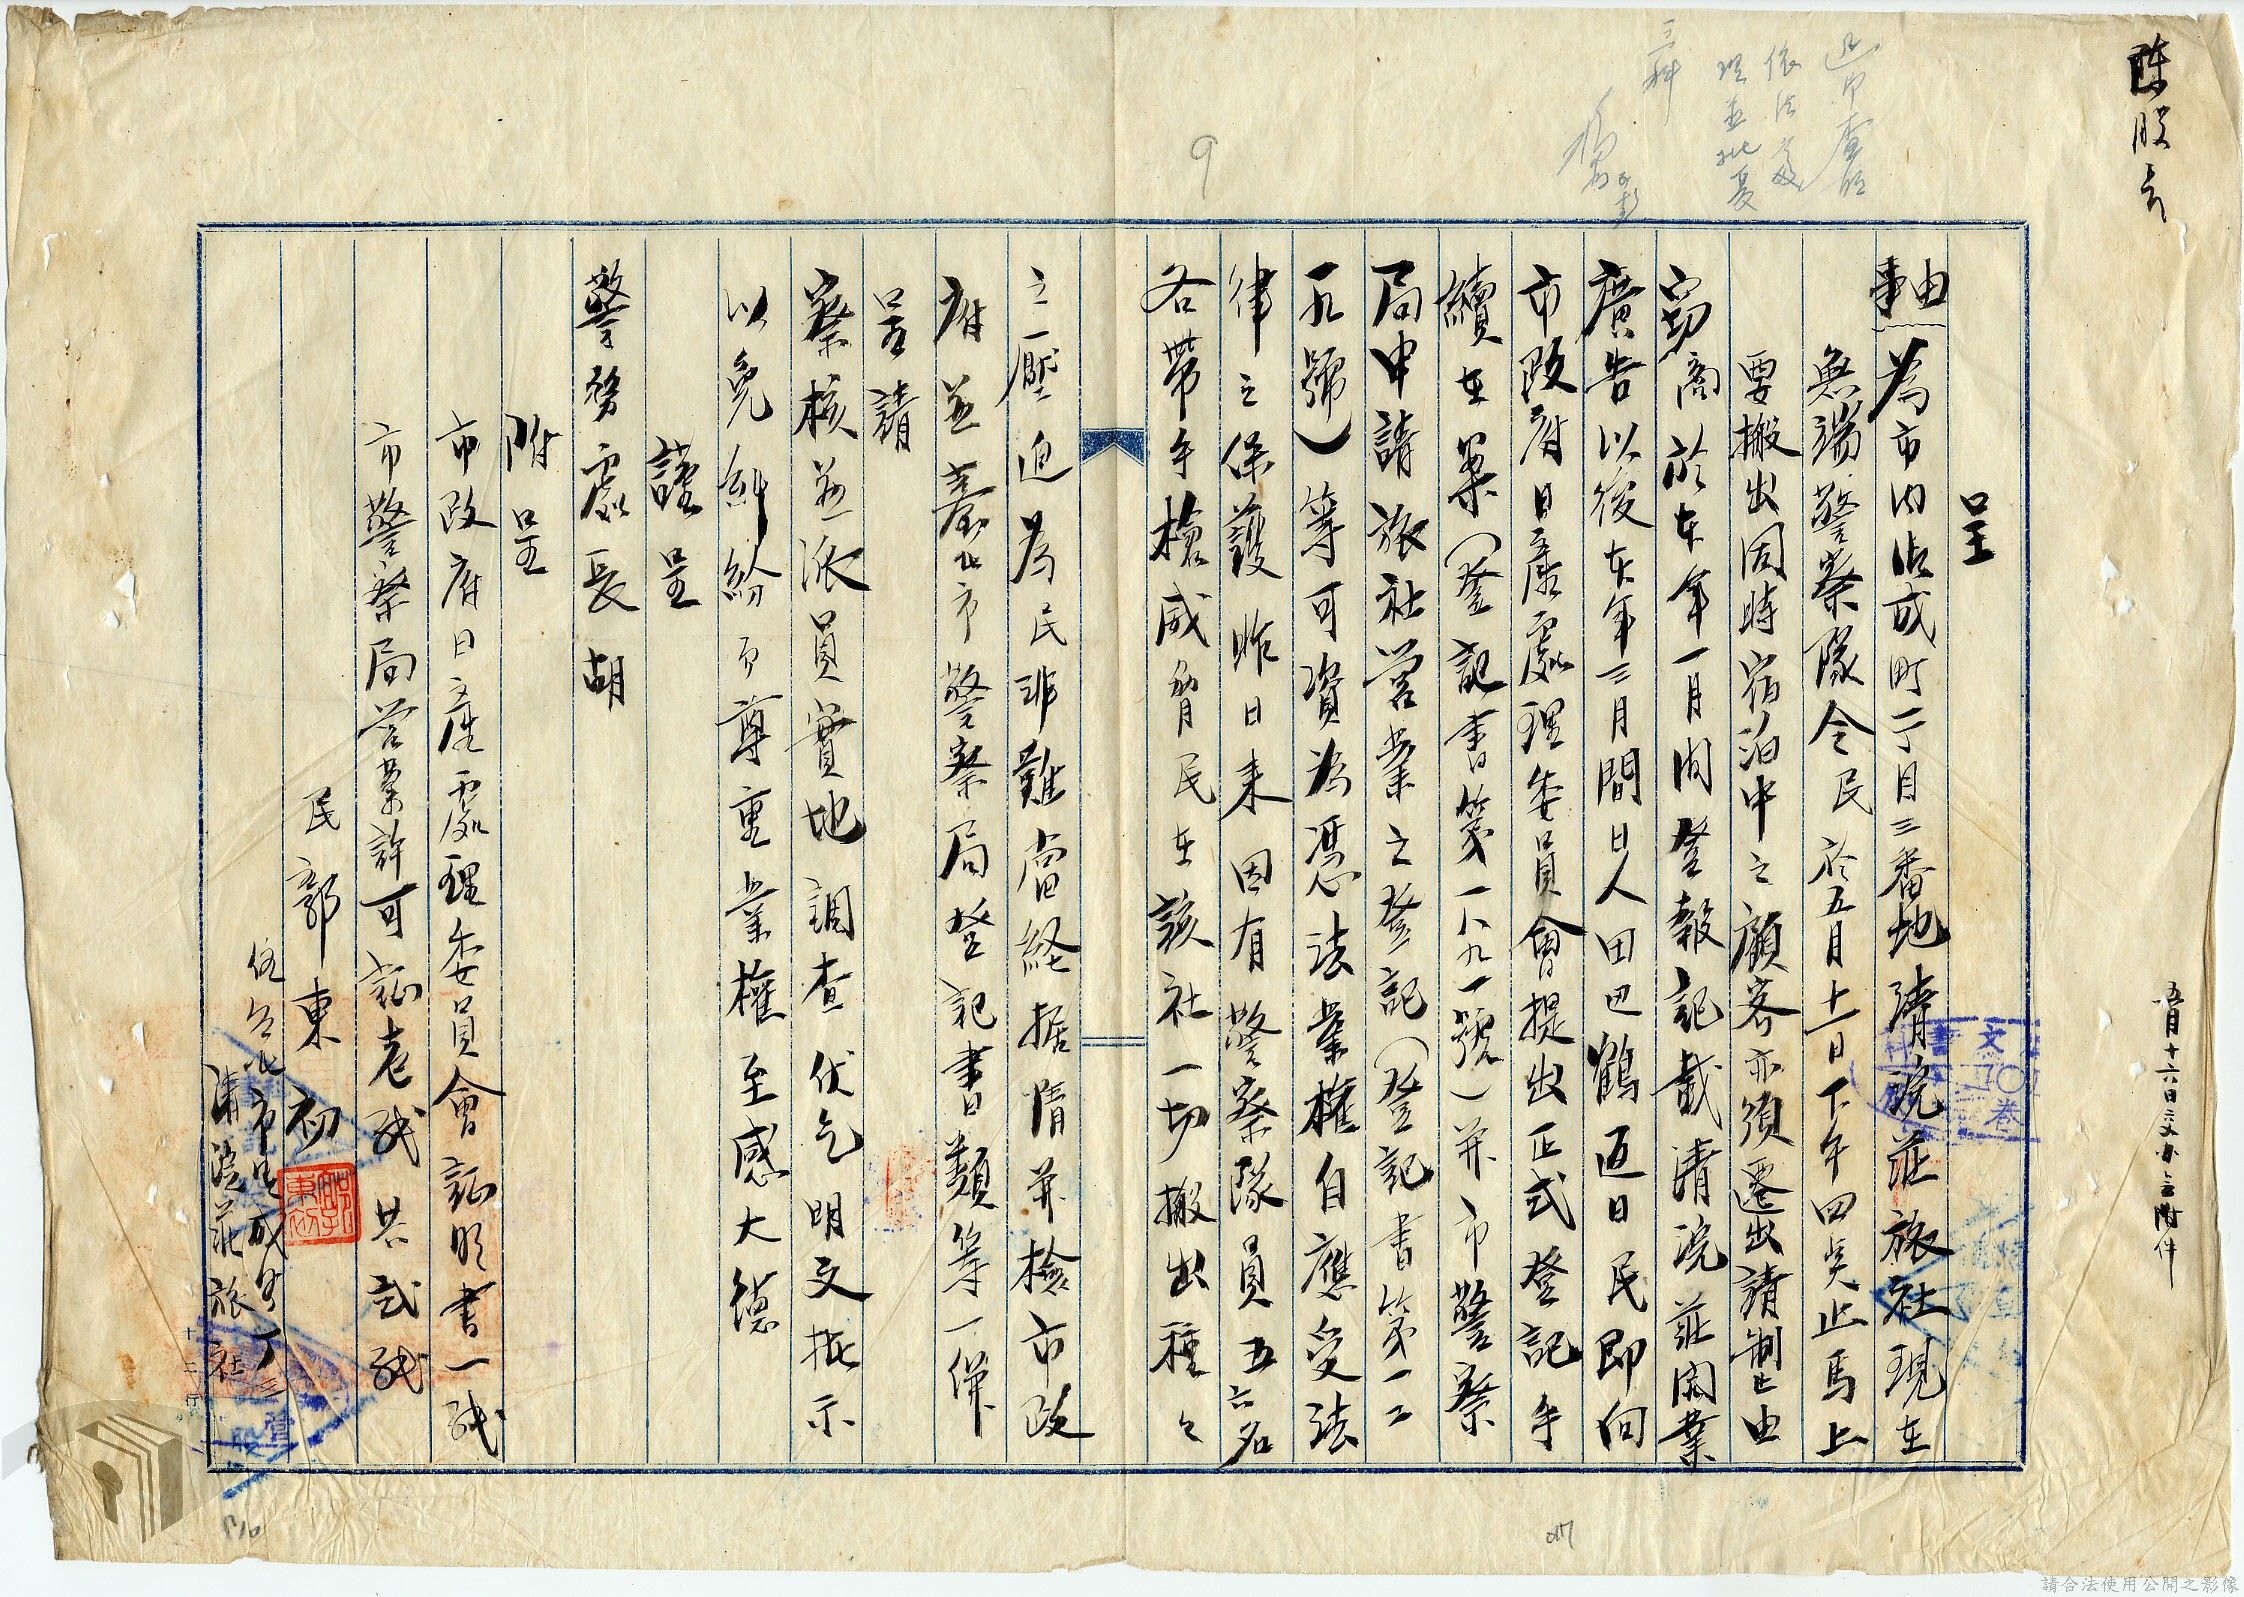 呈
事由 為市內佔成町一丁目三番地清浣莊旅社現在
無端警察隊令民於五月十一日下午四點止馬上
要搬出因時宿泊中之顧客亦須遷出請制止由
竊商於本年一月間登報記載清浣莊開業
廣告以後在本年三月間日人田邊鶴返日民即向
市政府日產處理委員會提出正式登記手
續在案（登記書第一八九一號）并市警察
局申請旅社營業之登記（登記書第一二
一九號）等可資為憑法業權自應受法
律之保護昨日來因有警察隊員五六名
各帶手槍威脅民在該社一切搬出種々
之壓迫為民非難當經据情并檢市政
府並臺北市警察局登記書類等一併
呈請
察核並派員實地調查伏乞明文批示
以免糾紛而尊重業權至感大德
謹呈
警務處長胡
附呈
市政府日產處理委員會証明書一紙
市警察局營業許可証老紙共弍紙
民郭東初
住台北市佔成町一丁三
清浣莊旅社
陳股長
五月十六日
附件
三科
9
十二行
017